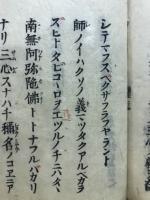 シテマフスベクサフラフヤラント
師ノイハクソノ義マツタクアルベカラ
ズヒトタビコヽロヲエツルノチニハタヽ
南無阿弥陀佛トトナフルバカリ
ナリ三心スナハチ稱名ノコヱニア